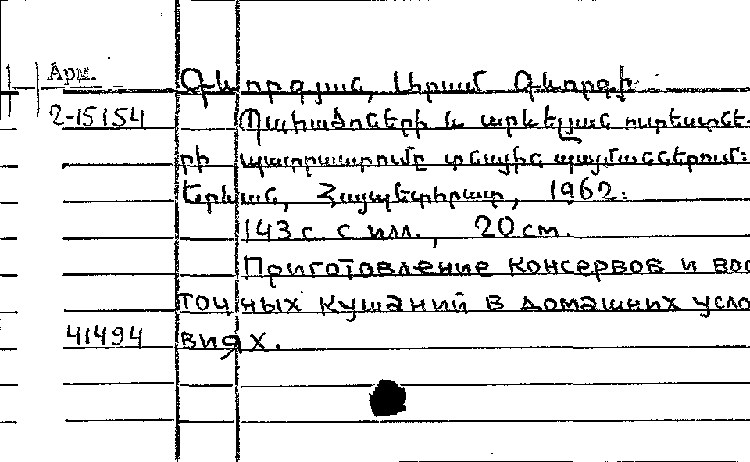 Арм.
Գևորգյան, Արամ Գևորգի
2-15154
Պահածոների և արևելյան ուտեստնե-
րի պատրաստումը տնային պայմաններում:
Երևան, Հայպետհրատ, 1962:
143 с. с илл., 20 cm.
Приготовление консервов и вос
точных кушаний в домашних усло
41494
виях.